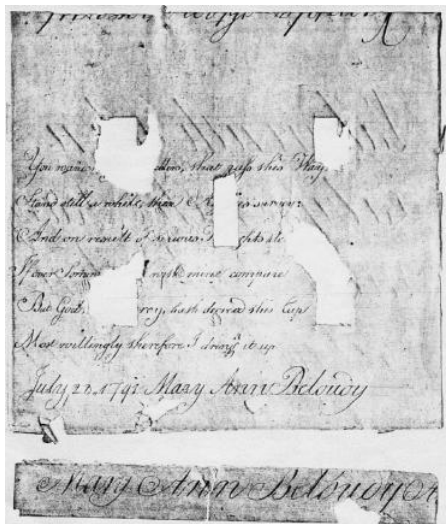 You that pass this Way,
Stand still a while, than survey:
And on result of serious
If ever might mine compare
But God hath decreed this Cup
Most willingly therefore I drink it up
July 28 1791 Mary Ann Beloudy
Mary Ann Beloudy